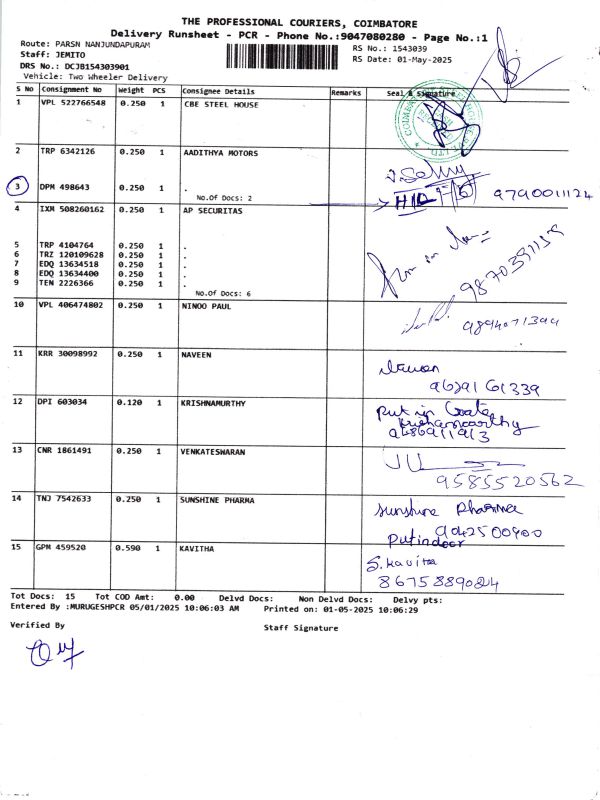 THE PROFESSIONAL COURIERS, COIMBATORE
Delivery Runsheet - PCR - Phone No.:9047080280 - Page No.:1
Route: PARSN NANJUNDAPURAM
RS No.: 1543039
Staff: JEMITO
RS Date: 01-May-2025
DRS No.: DCJB154303901
Vehicle: Two Wheeler Delivery
S No Consignment No Weight PCS Consignee Details Remarks Seal & Signature
1 VPL 522766548 0.250 1 CBE STEEL HOUSE
2 TRP 6342126 0.250 1 AADITHYA MOTORS
3 DPM 498643 0.250 1 .
No.Of Docs: 2
9790011124
4 IXM 508260162 0.250 1 AP SECURITAS
5 TRP 4104764 0.250 1 .
6 TRZ 120109628 0.250 1 .
7 EDQ 13634518 0.250 1 .
8 EDQ 13634400 0.250 1 .
9 TEN 2226366 0.250 1 .
No.Of Docs: 6
10 VPL 406474802 0.250 1 NINOO PAUL
11 KRR 30098992 0.250 1 NAVEEN
9629161339
12 DPI 603034 0.120 1 KRISHNAMURTHY
Put in Gate
Krishnamoorthy
9486911913
13 CNR 1861491 0.250 1 VENKATESWARAN
9585520562
14 TNJ 7542633 0.250 1 SUNSHINE PHARMA
Sunshine Pharma
942500900
Put indoor
15 GPM 459520 0.590 1 KAVITHA
S. Kavitha
8675889084
Tot Docs: 15 Tot COD Amt: 0.00 Delvd Docs: Non Delvd Docs: Delvy pts:
Entered By :MURUGESHPCR 05/01/2025 10:06:03 AM Printed on: 01-05-2025 10:06:29
Verified By
Staff Signature